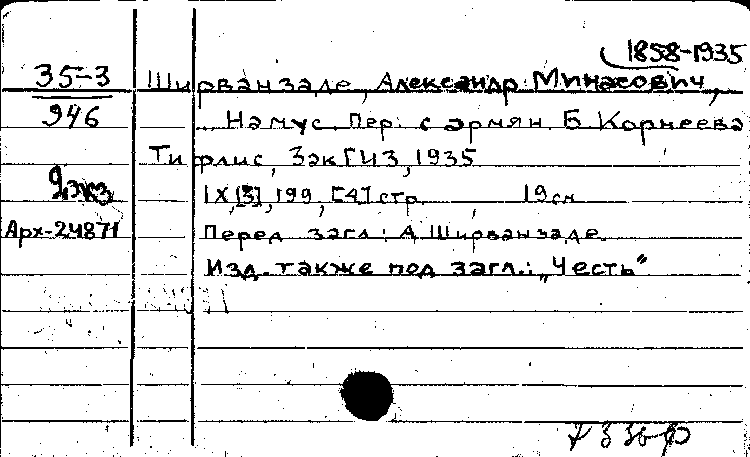 1858-1935
35-3 Ширванзаде, Александр Минасович,
946 Намус. Пер. с армян. Б. Корнеева
Тифлис, ЗакГИЗ, 1935
2экз
IX,[3], 199, [4] стр. 19см
Арх-24871 Перед загл.: А. Ширванзаде.
Изд. также под загл.: „Честь“